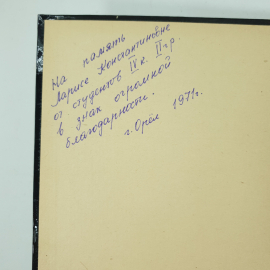 На память
Ларисе Константиновне
от студентов IV к. II гр.
в знак огромной
благодарности.
г. Орёл 1971г.